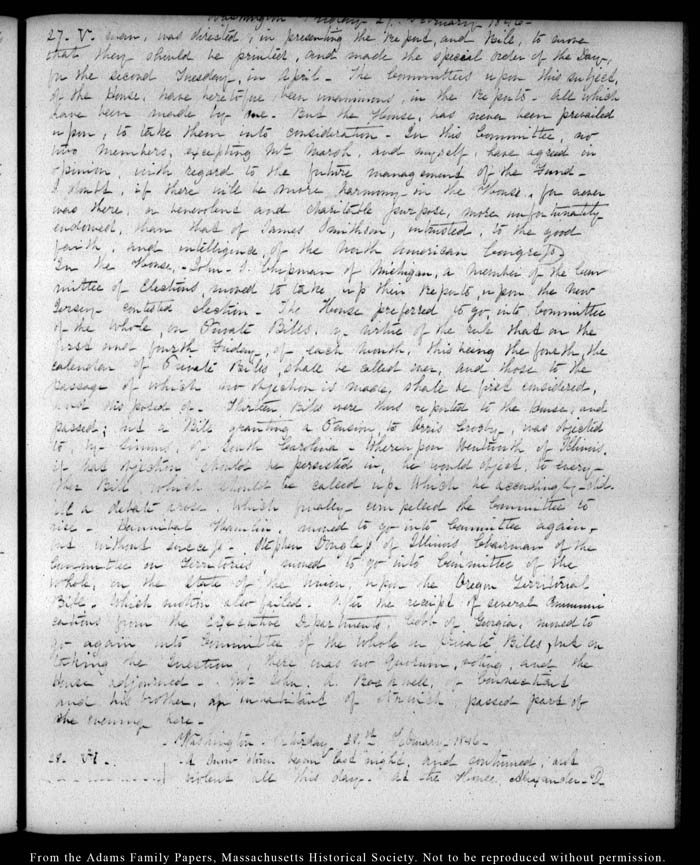 Washington Friday 27. February 1846-
27. V. man, was directed, in presenting the Report, and Bill, to move
that they should be printed, and made the special order of the day,
for the second Tuesday, in April - The Committees upon this subject,
of the House, have heretofore been unanimous, in the Reports - all which
have been made by me. But the House, has never been prevailed
upon, to take them into consideration - In this Committee, no
two members, excepting Mr Marsh, and myself, have agreed in
opinion, with regard to the future management of the Fund -
I doubt, if there will be more harmony in the House, for never
was there, a benevolent and charitable purpose, more unfortunately
endowed, than that of James Smithson, intrusted, to the good
faith, and intelligence, of the North American Congress
In the House, - John S. Chipman of Michigan, a member of the Com
mittee of Elections, moved to take up their Reports, upon the New
Jersey contested election - The House preferred to go, into Committee
of the Whole, on Private Bills, by virtue of the rule that on the
first and fourth Friday, of each month, this being the fourth, the
calendar of Private Bills, shall be called over, and those to the
passage of which no objection is made, shall be first considered,
and disposed of - Thirteen Bills were thus reported to the House, and
passed; but a Bill granting a Pension, to Orris Crosby, was objected
to, by Simms, of South Carolina - Whereupon Wentworth of Illinois,
if his objection should be persisted in, he would object, to every
other Bill, which should be called up. Which he accordingly did.
a debate arose, which finally compelled the Committee to
rise - Hannibal Hamlin, moved to go into Committee again,
but without success - Stephen Douglass of Illinois Chairman of the
Committee on Territories, moved to go into Committee of the
whole, on the State of the Union, upon the Oregon Territorial
Bill - Which motion also failed. After the receipt of several Communi
cations from the Executive Departments, Cobb of Georgia, moved to
go again into Committee of the whole on private Bills, but on
taking the Question, there was no Quorum, voting, and the
House adjourned - Mr John. A. Rockwell, of Connecticut
and his brother, an inhabitant of Norwich, passed part of
the evening here -
Washington. Saturday 28th February 1846-
28. VI. A Snow storm began last night, and continued, not
violent all this day. at the House Alexander D.
From the Adams Family Papers, Massachusetts Historical Society. Not to be reproduced without permission.